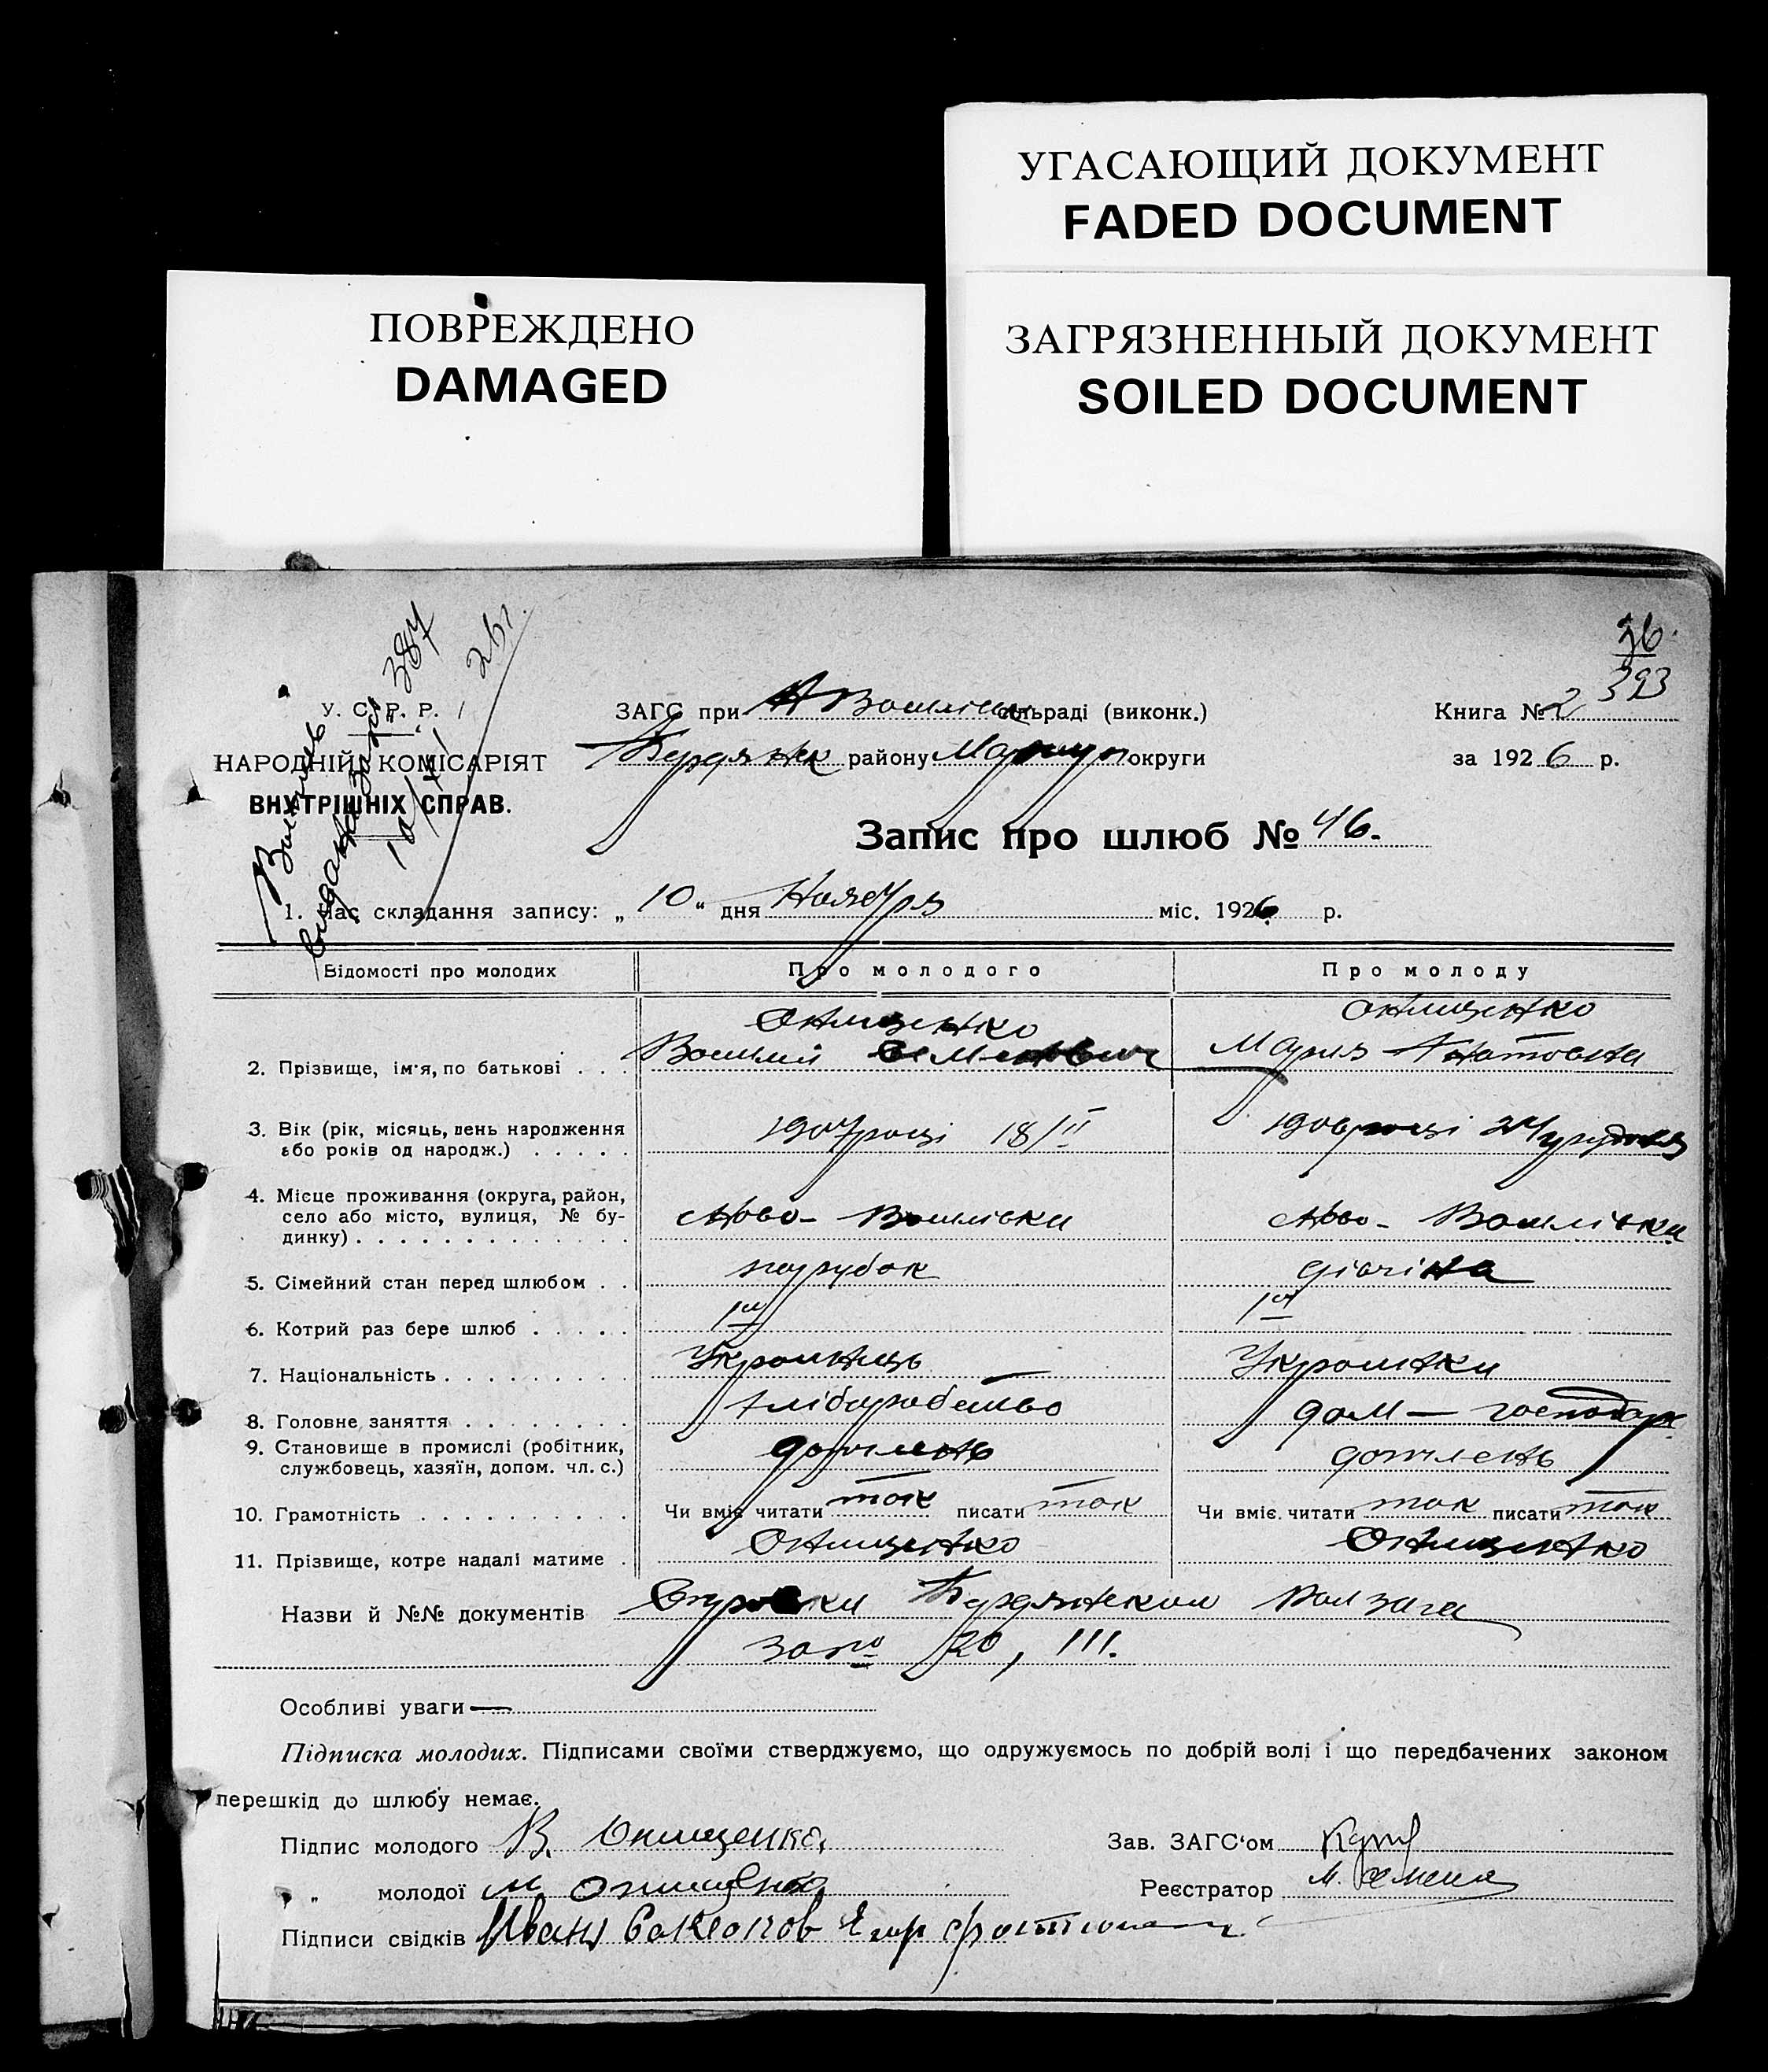 УГАСАЮЩИЙ ДОКУМЕНТ
FADED DOCUMENT
ПОВРЕЖДЕНО
DAMAGED
ЗАГРЯЗНЕННЫЙ ДОКУМЕНТ
SOILED DOCUMENT
36
393
387
26г.
У. С. Р. Р.
НАРОДНІЙ КОМІСАРІЯТ
ВНУТРІШНІХ СПРАВ.
ЗАГС при сільраді (виконк.)
Книга № 2
Бердянск району Маріуп округи
за 1926 р.
Запис про шлюб № 46.
1. Час складання запису: „ 10 " дня Ноября міс. 1926 р.
Відомості про молодих
Про молодого
Про молоду
Онищенко
Онищенко
2. Прізвище, ім'я, по батькові . . . Василій Семенович Мария
3. Вік (рік, місяць, день народження
або років од народж.) . . . . . 1907 році 18/II 1906 році 24/грудня
4. Місце проживання (округа, район,
село або місто, вулиця, № бу-
динку) . . . . . . . . . . . . Ново-Василівка Ново-Василівка
5. Сімейний стан перед шлюбом . . парубок дівчіна
6. Котрий раз бере шлюб . . . . . 1ий 1ий
7. Національність . . . . . . . . . Украінець Украінка
8. Головне заняття . . . . . . . . хліборобство дом — господар
9. Становище в промислі (робітник,
службовець, хазяїн, допом. чл. с.)
10. Грамотність . . . . . . . . . . Чи вміє читати так писати так Чи вміє читати так писати так
11. Прізвище, котре надалі матиме . Онищенко Онищенко
Назви й №№ документів Бердянском
за № 20, 111.
Особливі уваги —
Підписка молодих. Підписами своїми стверджуємо, що одружуємось по добрій волі і що передбачених законом
перешкід до шлюбу немає.
Підпис молодого В. Онищенко
Зав. ЗАГС'ом
„ " молодої М Онищенко
Реєстратор М.
Підписи свідків Иван